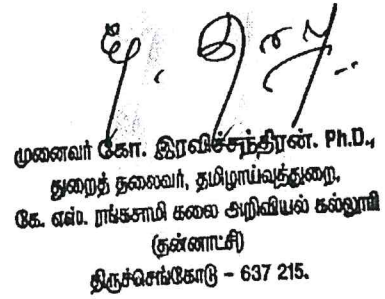 முனைவர் கோ. இரவிச்சந்திரன். Ph.D.,
துறைத் தலைவர், தமிழாய்வுத்துறை,
கே. எஸ். ரங்கசாமி கலை அறிவியல் கல்லூரி
(தன்னாட்சி)
திருச்செங்கோடு - 637 215.